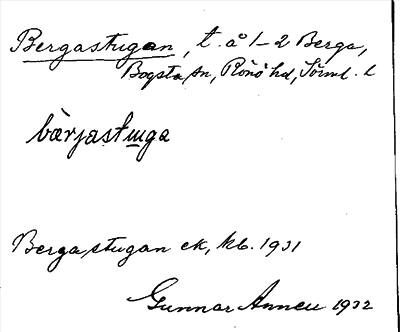 Bergastugan, t. å 1–2 Berga,
Bogsta sn, Rönö hd, Sörml. l
bärjastuga
Bergastugan ek, kb. 1931
Gunnar Anneu 1932